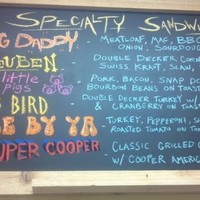 SPECIALTY SANDW
G DADDY
MEATLOAF, MAC, BBQ
ONION, SOURDOUG
EUBEN
DOUBLE DECKER CORN
SWISS, KRAUT, SLAW,
little
pigs
PORK, BACON, SNAP DO
BOURBON BEANS ON TOAST
BIRD
DOUBLE DECKER TURKEY W/
& CRANBERRY ON TOAST
BE BY YA
TURKEY, PEPPERONI, S
ROASTED TOMATO ON T
UPER COOPER
CLASSIC GRILLED C
W/ COOPER AMERIC